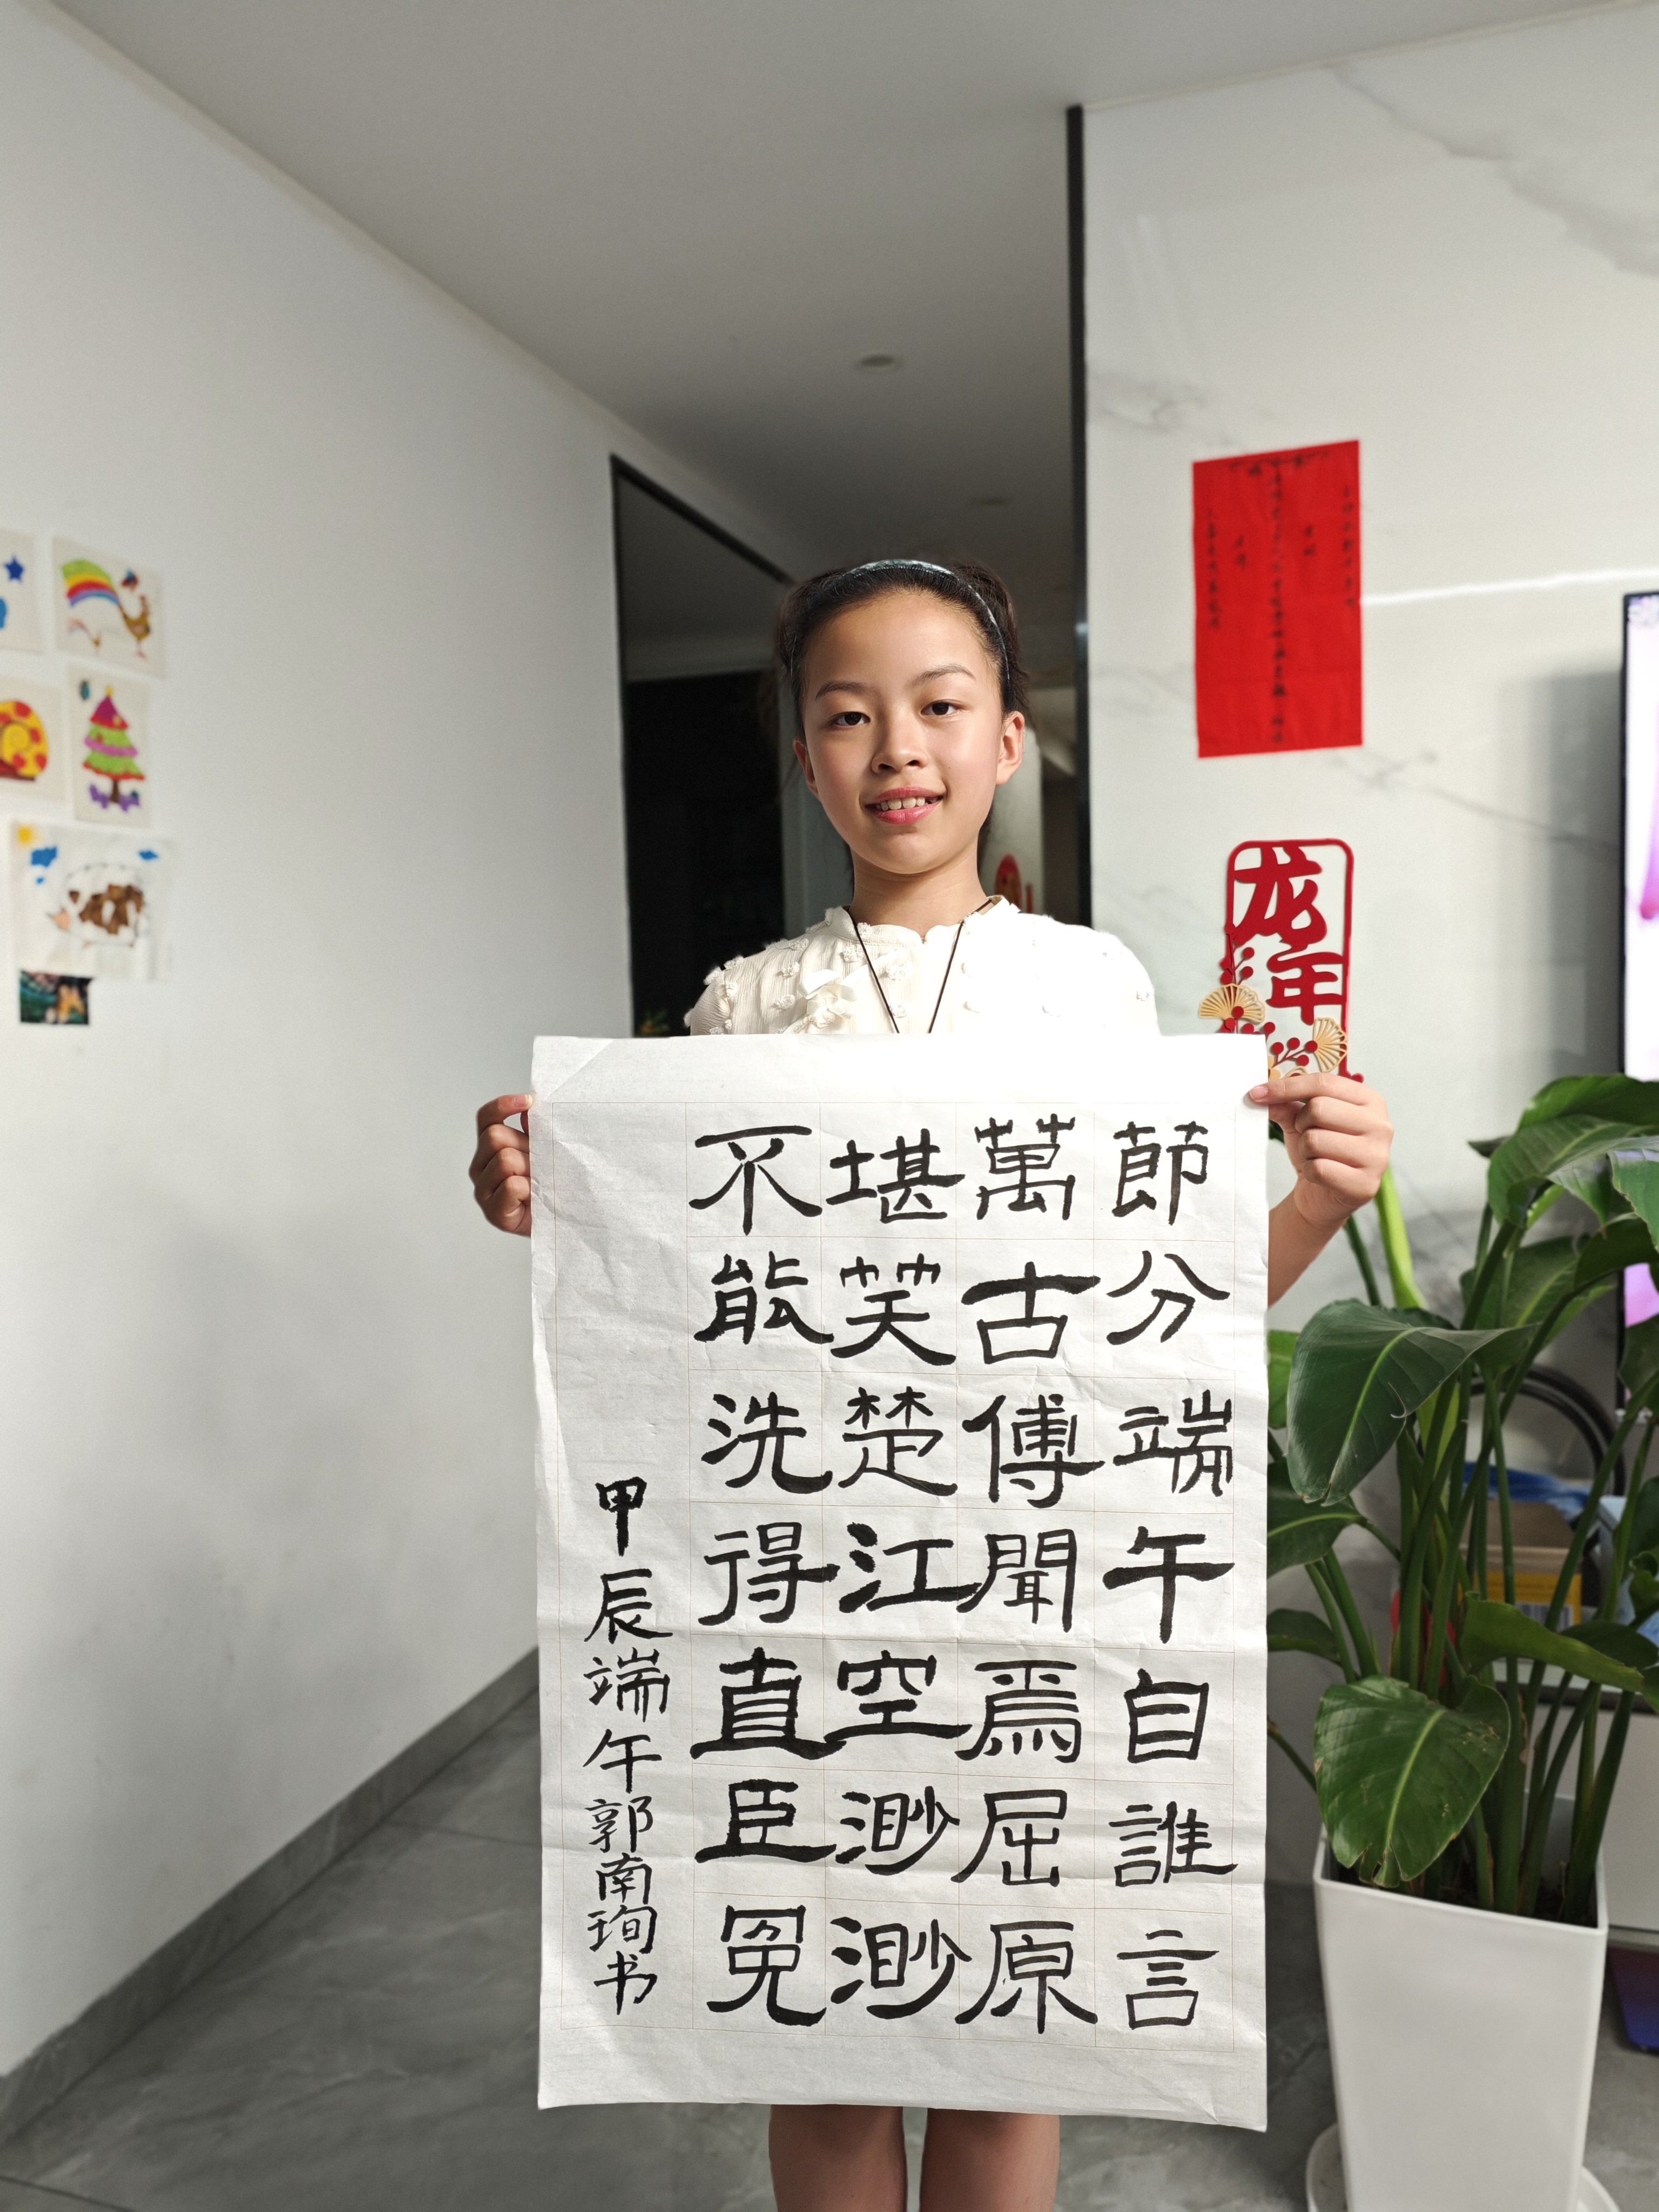 節分端午自誰言
萬古傳聞為屈原
堪笑楚江空渺渺
不能洗得直臣冤
甲辰端午郭南珣书
龙年